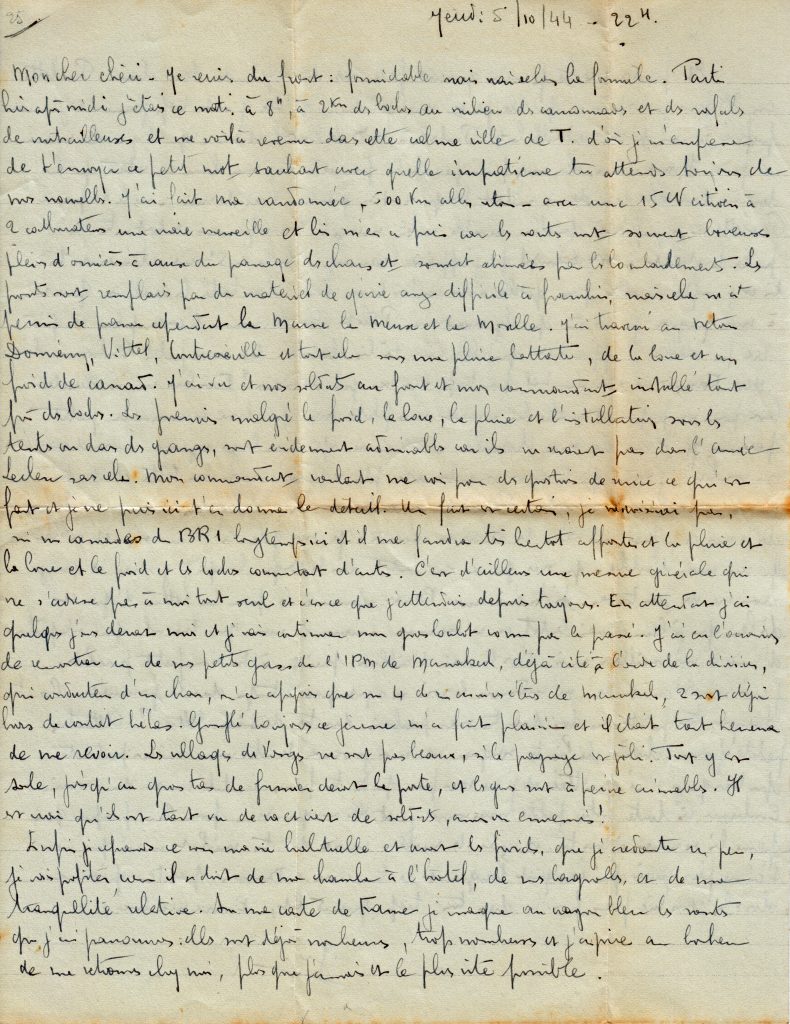 25
Jeudi 5/10/44 - 22 H.
Mon cher chéri - Je reviens du front : formidable mais vaiselon la formule. Parti
hier après midi j'étais ce matin à 8h, à 2 Km des boches au milieu des canonnades et des rafales
de mitrailleuses et me voilà revenu dans cette calme ville de T. d'où je m'empresse
de t'envoyer ce petit mot sachant avec quelle impatience tu attends toujours de
mes nouvelles. J'ai fait ma randonnée, 500 Km aller retour - avec une 15 CV citroën à
2 carburateurs une vraie merveille et bien m'en a pris car les routes sont souvent boueuses
pleines d'ornières à cause du passage des chars et souvent abimées par les bombardements. Les
ponts sont remplacés par du matériel de génie assez difficile à franchir, mais cela m'a
permis de passer cependant la Marne la Meuse et la Moselle. J'ai traversé au retour
Domrémy, Vittel, Contrexéville et tout cela sous une pluie battante, de la boue et un
froid de canard. J'ai vu et nos soldats au front et mon commandant installé tout
près des boches. Les premiers malgré le froid, la boue, la pluie et l'installation sous les
tentes ou dans des granges, sont évidemment admirables car ils ne seraient pas dans l'armée
Leclerc sans cela. Mon commandant voulait me voir pour des questions de service ce qui est
fait et je ne puis ici t'en donner le détail. Un fait est certain, je ne moisirai pas,
ni mes camarades du BR1 longtemps ici et il me faudra très bientôt affronter et la pluie et
la boue et le froid et les boches comme tant d'autres. C'est d'ailleurs une mesure générale qui
ne s'adresse pas à moi tout seul et c'est ce que j'attendais depuis toujours. En attendant j'ai
quelques jours devant moi et je vais continuer mon gros boulot comme par le passé. J'ai eu l'occasion
de rencontrer un de nos petits gosses de l'IPM de Marrakech, déjà cité à l'ordre de la division,
qui conducteur d'un char, m'a appris que sur 4 de nos de Marrakech, 2 sont déjà
hors de combat hélas. Gonflé toujours ce jeune m'a fait plaisir et il était tout heureux
de me revoir. Les villages des Vosges ne sont pas beaux, si le paysage est joli. Tout y est
sale, jusqu'au gros tas de fumier devant la porte, et les gens sont à peine aimables. Il
est vrai qu'ils ont tant vu de va et vient de soldats, amis ou ennemis !
Enfin je reprends ce soir ma vie habituelle et avant les froids, que je redoute un peu,
je vais profiter comme il se doit de ma chambre à l'hôtel, de mes bagnolles, et de ma
tranquillité relative. Sur ma carte de France je marque au crayon bleu les routes
que j'ai parcourues : elles sont déjà nombreuses, trop nombreuses et j'aspire au bonheur
de me retrouver chez moi, plus que jamais et le plus vite possible.